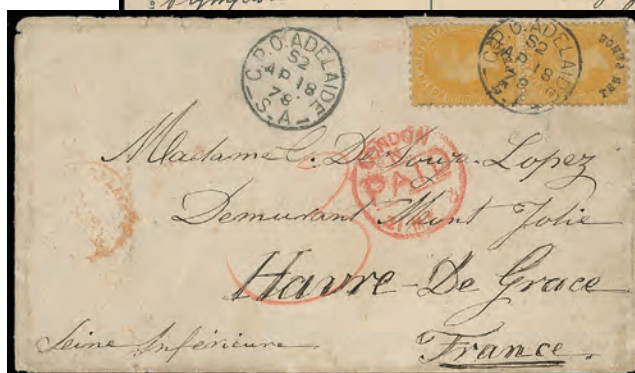 G.P.O. ADELAIDE
S2
AP 18
78
S.A
G.P.O. ADELAIDE
S2
AP 18
78
LONDON
PAID
Madame C. De Souza-Lopez
Demeurant Mont Jolie
Havre-De Grace
Seine Inférieure.
France.